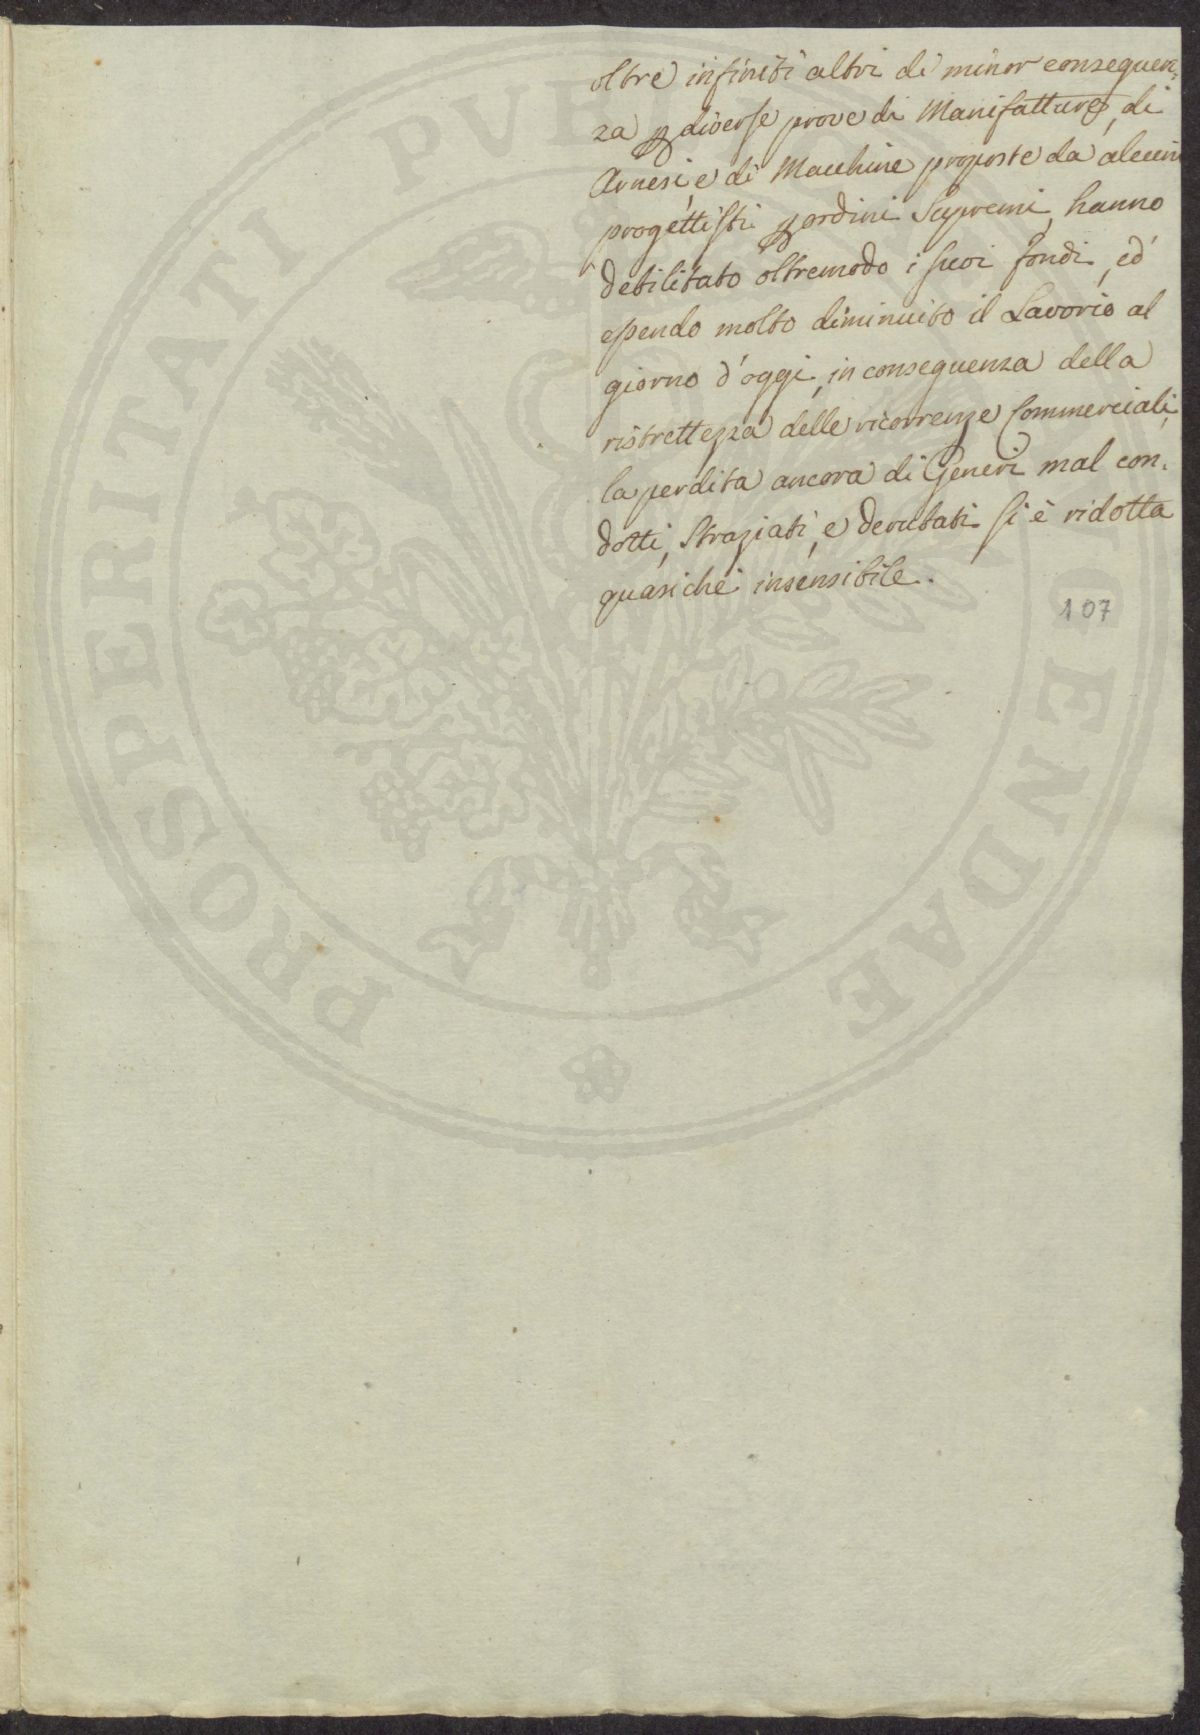 oltre infiniti altri di minor conseguen=
za p diverse prove di Manifatture, di
Arnesi, e di Macchine proposte da alcuni
progettisti p ordini Supremi, hanno
debilitato oltremodo i suoi fondi, ed
essendo molto diminuito il Lavorio al
giorno d'oggi, in conseguenza della
ristrettezza delle ricorrenze Commerciali,
la perdita ancora di Generi mal con-
dotti, straziati, e derubati si è ridotta
quasiché insensibile.
107
PROSPERITATI PVBLICAE AVGENDAE